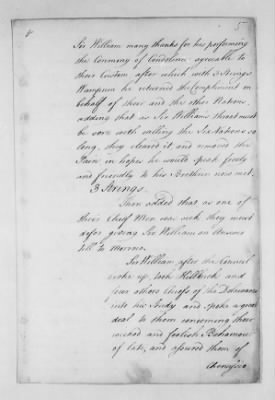 4 5
Sir William many thanks for his performing
the Ceremony of Condolence agreeable to
their Custom, after which with 3 Strings
Wampum he returned the Compliment in
behalf of their and the other Nations,
adding that as Sir Williams throat must
be sore with calling the Six Nations so
long, they cleared it and removed the
Pain in hopes he would speak freely
and friendly to his Brethren now met.
3 Strings.
Then added that as one of
their Chief Men was sick they must
defer giving Sir William an Answer
till to Morrow.
Sir William after the Council
broke up, took Killbuck and
four others Chiefs of the Delawares
into his Study and spoke a great
deal to them concerning their
wicked and foolish Behaviour
of late, and assured them of